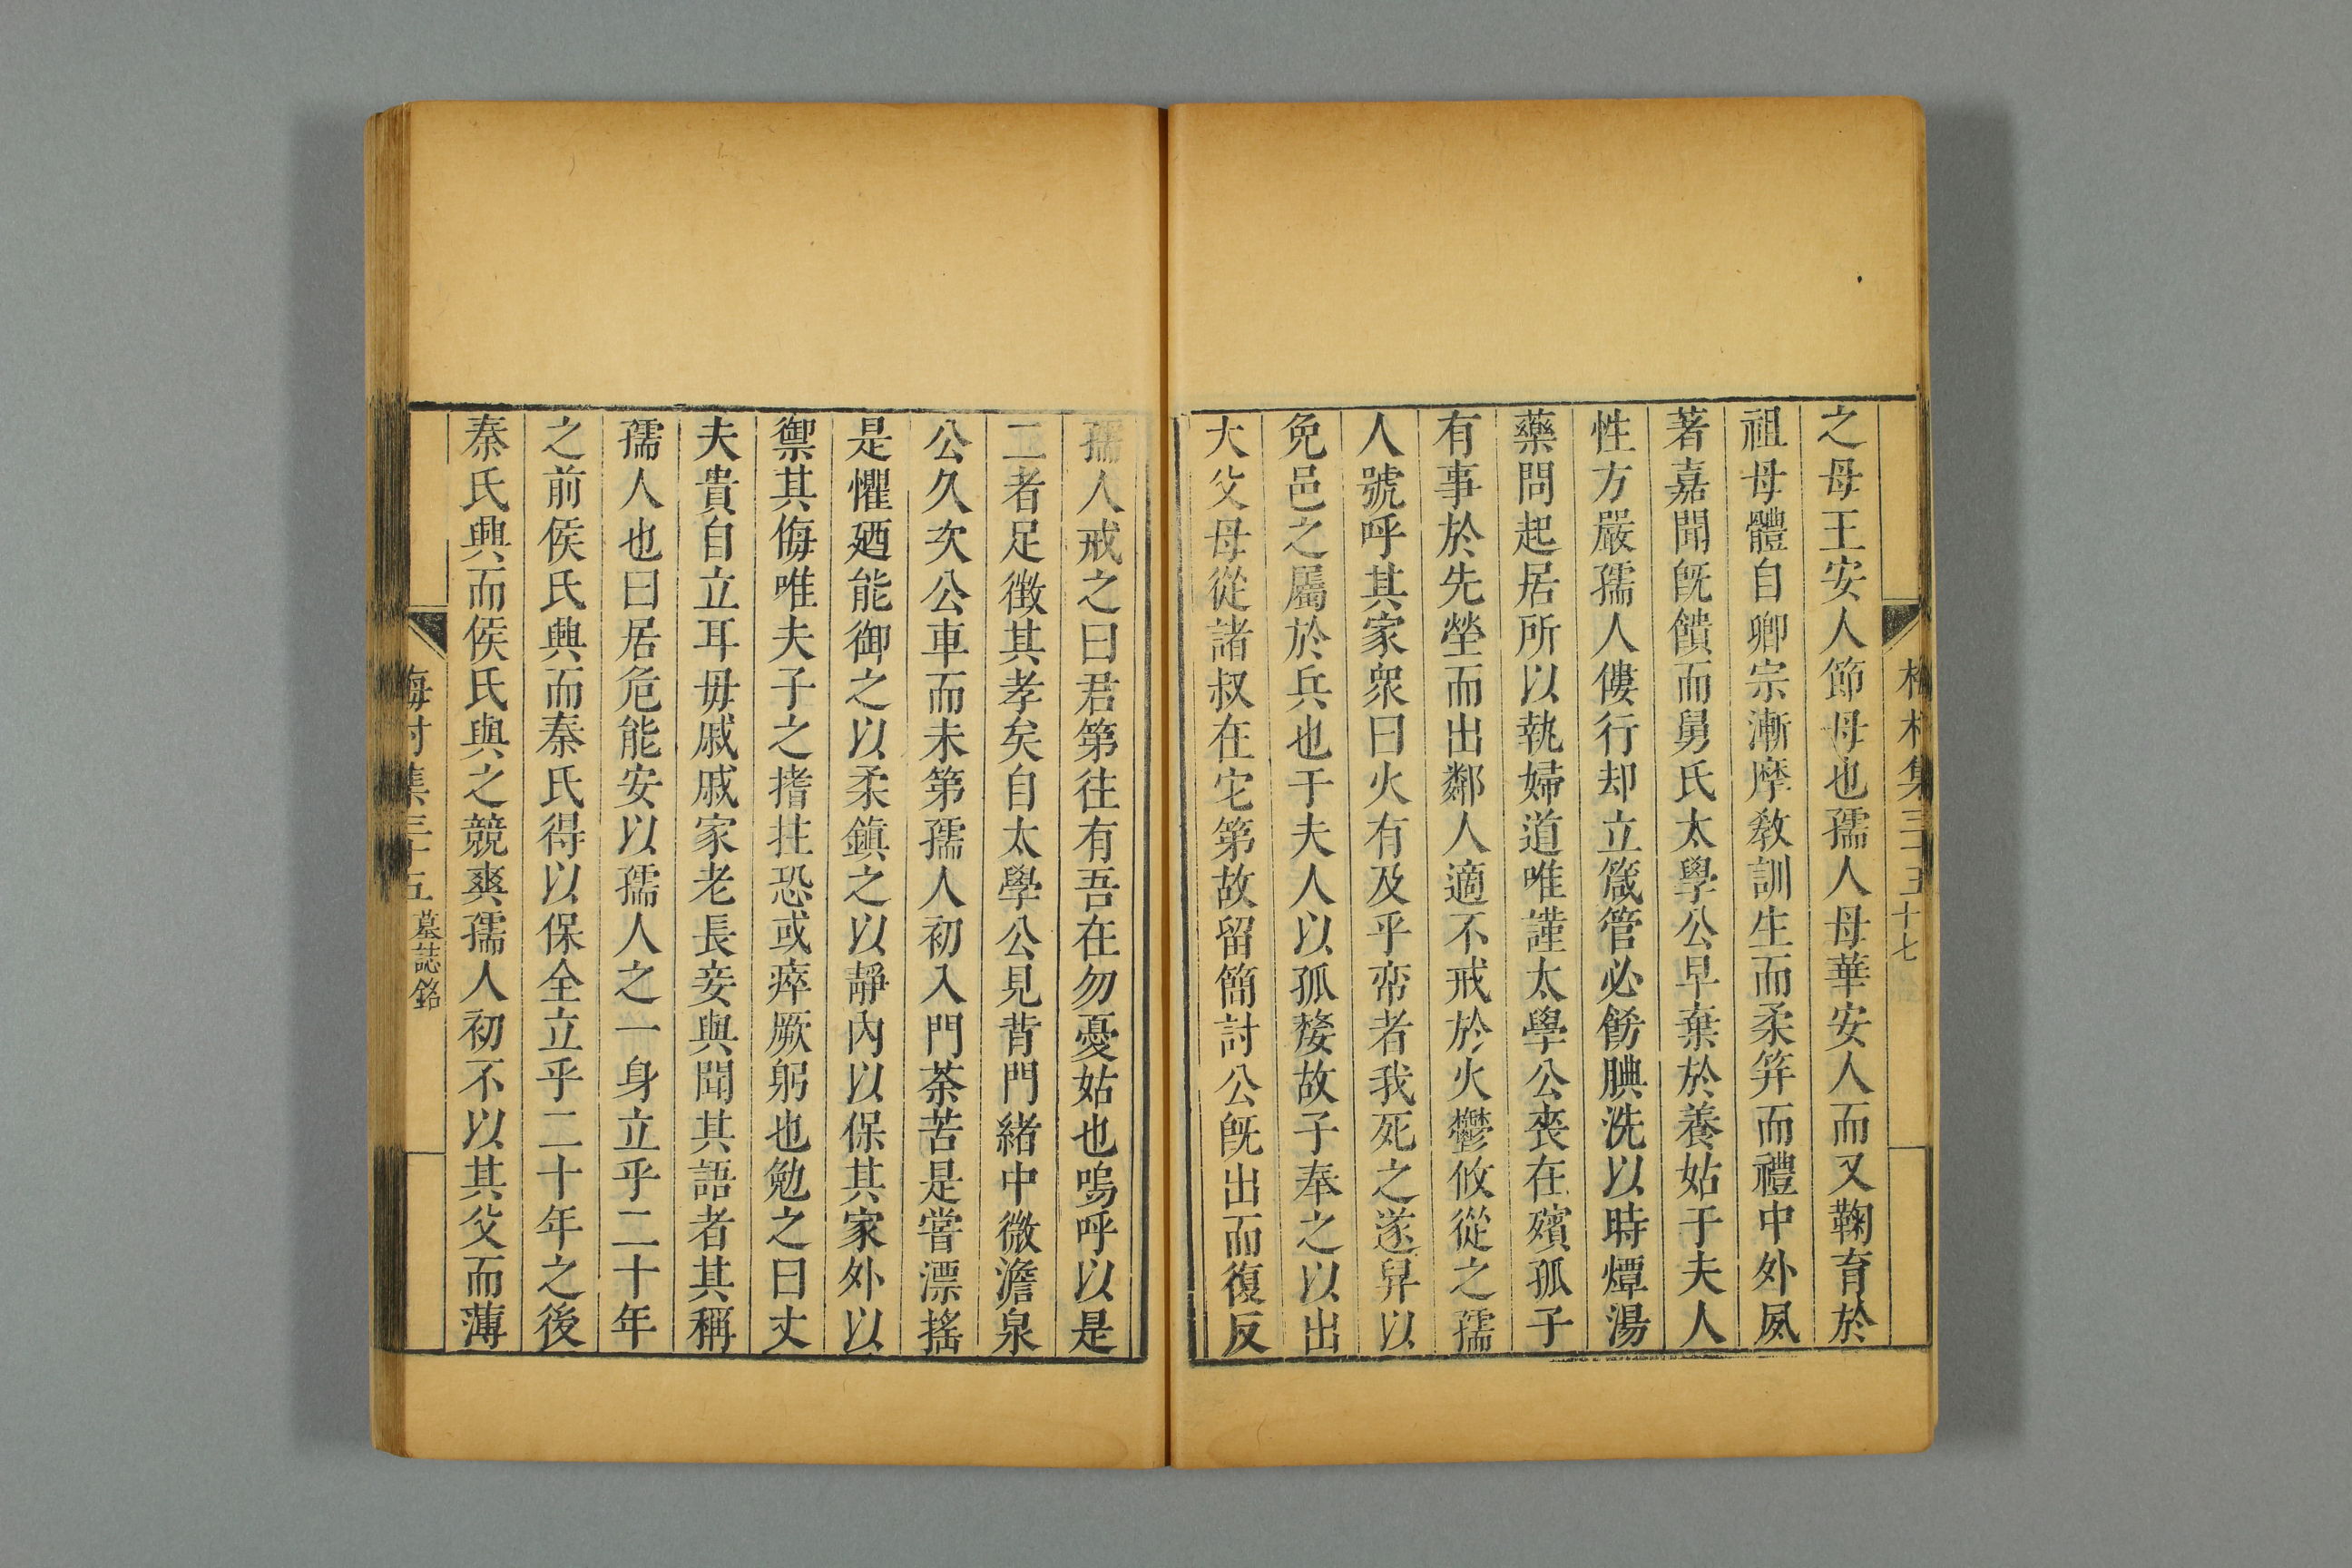 集三十五
十七
之母王安人節母也孺人母華安人而又鞠育於
祖母體自卿宗漸摩教訓生而柔筓而禮中外夙
著嘉聞旣饋而舅氏太學公早棄於養姑于夫人
性方嚴孺人僂行却立箴管必餝腆洗以時燂湯
藥問起居所以執婦道唯謹太學公喪在殯孤子
有事於先塋而出鄰人適不戒於火鬱攸從之孺
人號呼其家衆曰火有及乎帟者我死之遂舁以
免邑之屬於兵也于夫人以孤嫠故子奉之以出
大父母從諸叔在宅第故留簡討公旣出而復反
孺人戒之曰君第往有吾在勿憂姑也嗚呼以是
二者足徵其孝矣自太學公見背門緒中微澹泉
公久次公車而未第孺人初入門荼苦是嘗漂搖
是懼廼能御之以柔鎭之以靜內以保其家外以
禦其侮唯夫子之搘拄恐或瘁厥躬也勉之曰丈
夫貴自立耳毋戚戚家老長妾與聞其語者其稱
孺人也曰居危能安以孺人之一身立乎二十年
之前侯氏興而秦氏得以保全立乎二十年之後
秦氏興而侯氏與之競爽孺人初不以其父而薄
梅村集三十五
墓誌銘